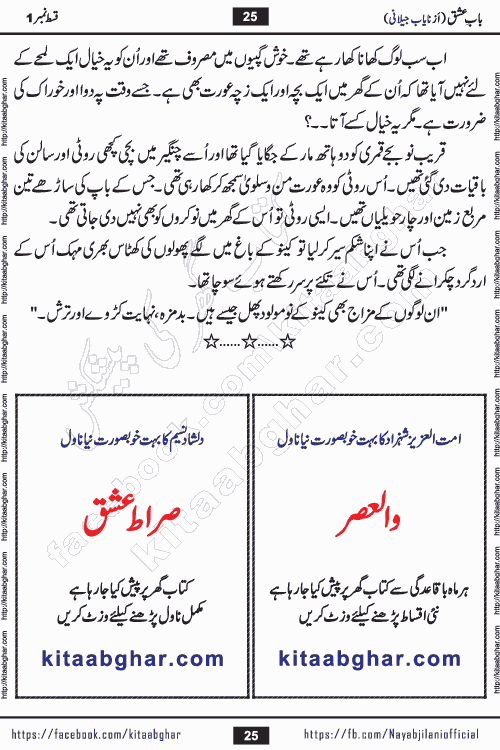 باب عشق (از نایاب جیلانی) 25 قسط نمبر 1
اب سب لوگ کھانا کھا رہے تھے۔ خوش گپیوں میں مصروف تھے اور اُن کو یہ خیال ایک لمحے کے
لئے نہیں آیا تھا کہ اُن کے گھر میں ایک بچہ اور ایک زچہ عورت بھی ہے۔ جسے وقت پہ دوا اور خوراک کی
ضرورت ہے۔ مگر یہ خیال کسے آتا۔۔؟
قریب نو بجے قمری کو دو ہاتھ مار کے جگایا گیا تھا اور اُسے چنگیر میں بچی کچھی روٹی اور سالن کی
باقیات دی گئی تھیں۔ اُس روٹی کو وہ عورت من و سلویٰ سمجھ کر کھا رہی تھی۔ جس کے باپ کی ساڑھے تین
مربع زمین اور چار حویلیاں تھیں۔ ایسی روٹی تو اُس کے گھر میں نوکروں کو بھی نہیں دی جاتی تھی۔
جب اُس نے اپنا شکم سیر کر لیا تو کینو کے باغ میں لگے پھولوں کی کھٹاس بھری مہک اُس کے
ارد گرد چکرانے لگی تھی۔ اُس نے تکئے پر سر رکھتے ہوئے سوچا تھا۔
"ان لوگوں کے مزاج بھی کینو کے نومولود پھل جیسے ہیں۔ بدمزہ، نہایت کڑوے اور ترش۔"
☆......☆......☆
امت العزیز شہزاد کا بہت خوبصورت نیا ناول
والعصر
ہر ماہ باقاعدگی سے کتاب گھر پر پیش کیا جا رہا ہے
نئی اقساط پڑھنے کیلئے وزٹ کریں
kitaabghar.com
دلشاد نسیم کا بہت خوبصورت نیا ناول
صراط عشق
کتاب گھر پر پیش کیا جا رہا ہے
مکمل ناول پڑھنے کیلئے وزٹ کریں
kitaabghar.com
https://facebook.com/kitaabghar 25 https://fb.com/Nayabjilaniofficial
http://kitaabghar.com